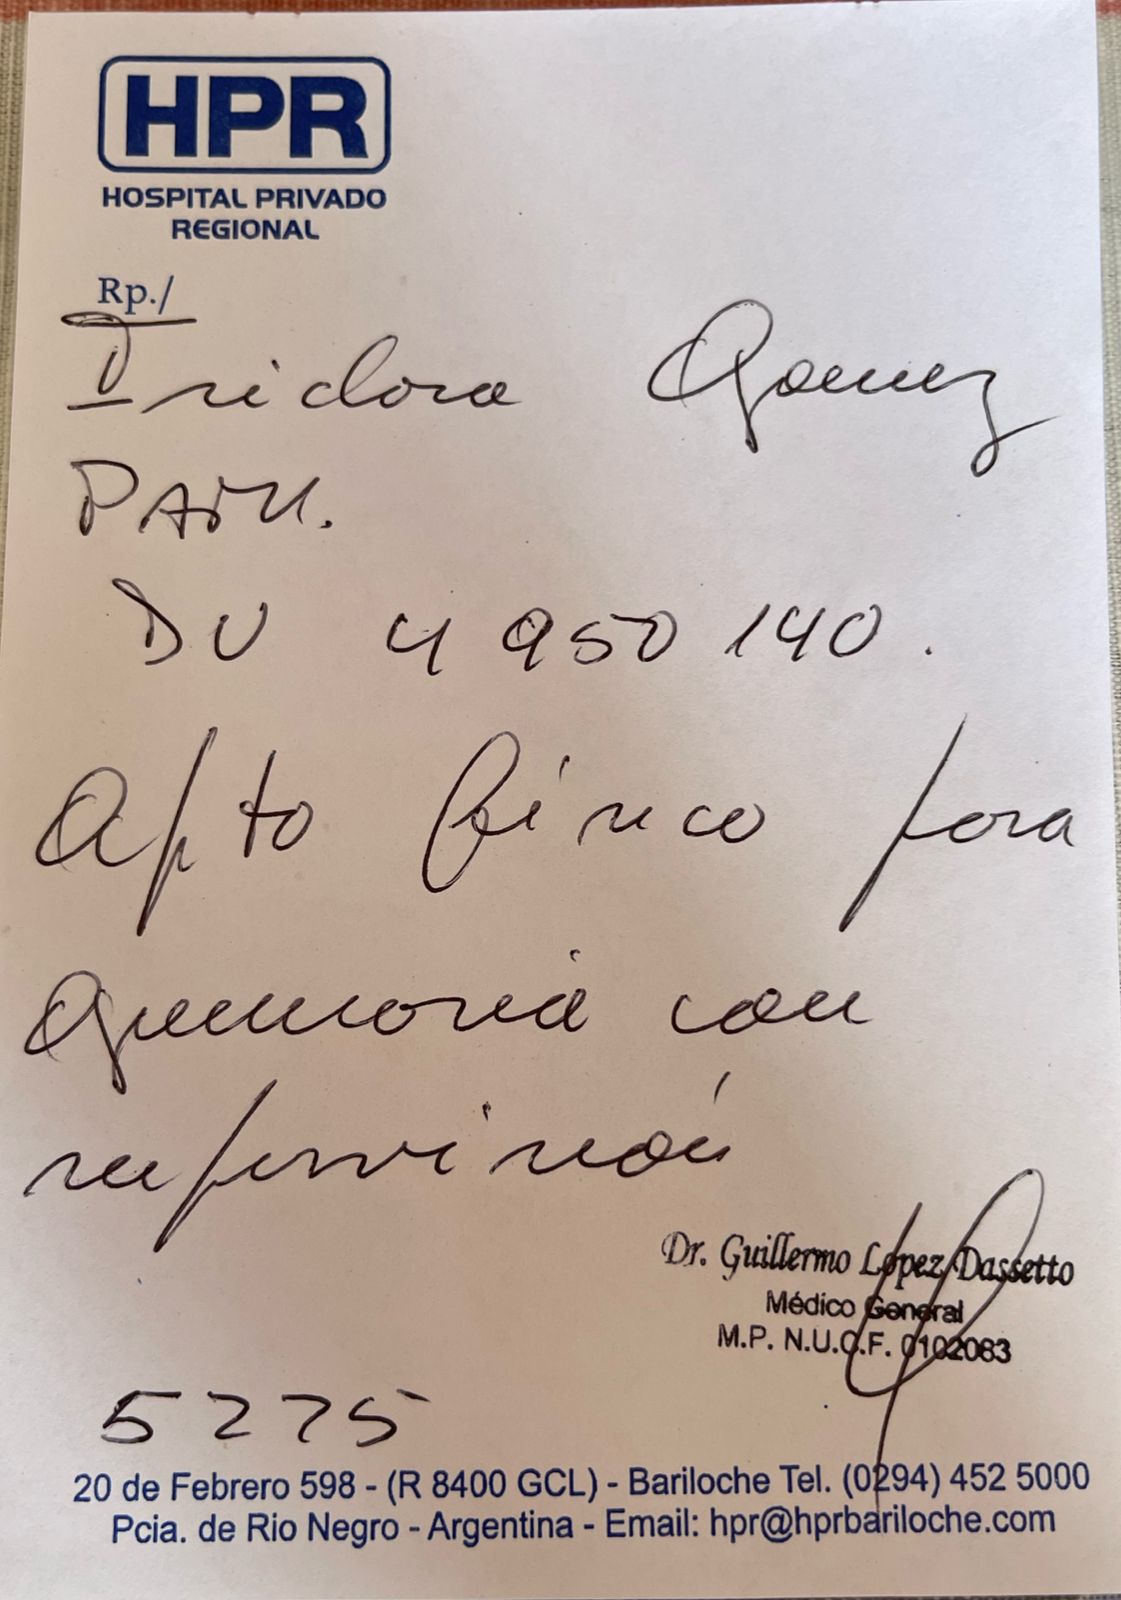 HPR
HOSPITAL PRIVADO
REGIONAL
Rp./
Isidora Gomez
PAMI.
DU 4 950 140.
Apto físico para
gimnasia con
supervisión
Dr. Guillermo López Dassetto
Médico General
M.P. N.U.C.F. 0102083
5 2 75
20 de Febrero 598 - (R 8400 GCL) - Bariloche Tel. (0294) 452 5000
Pcia. de Rio Negro - Argentina - Email: hpr@hprbariloche.com